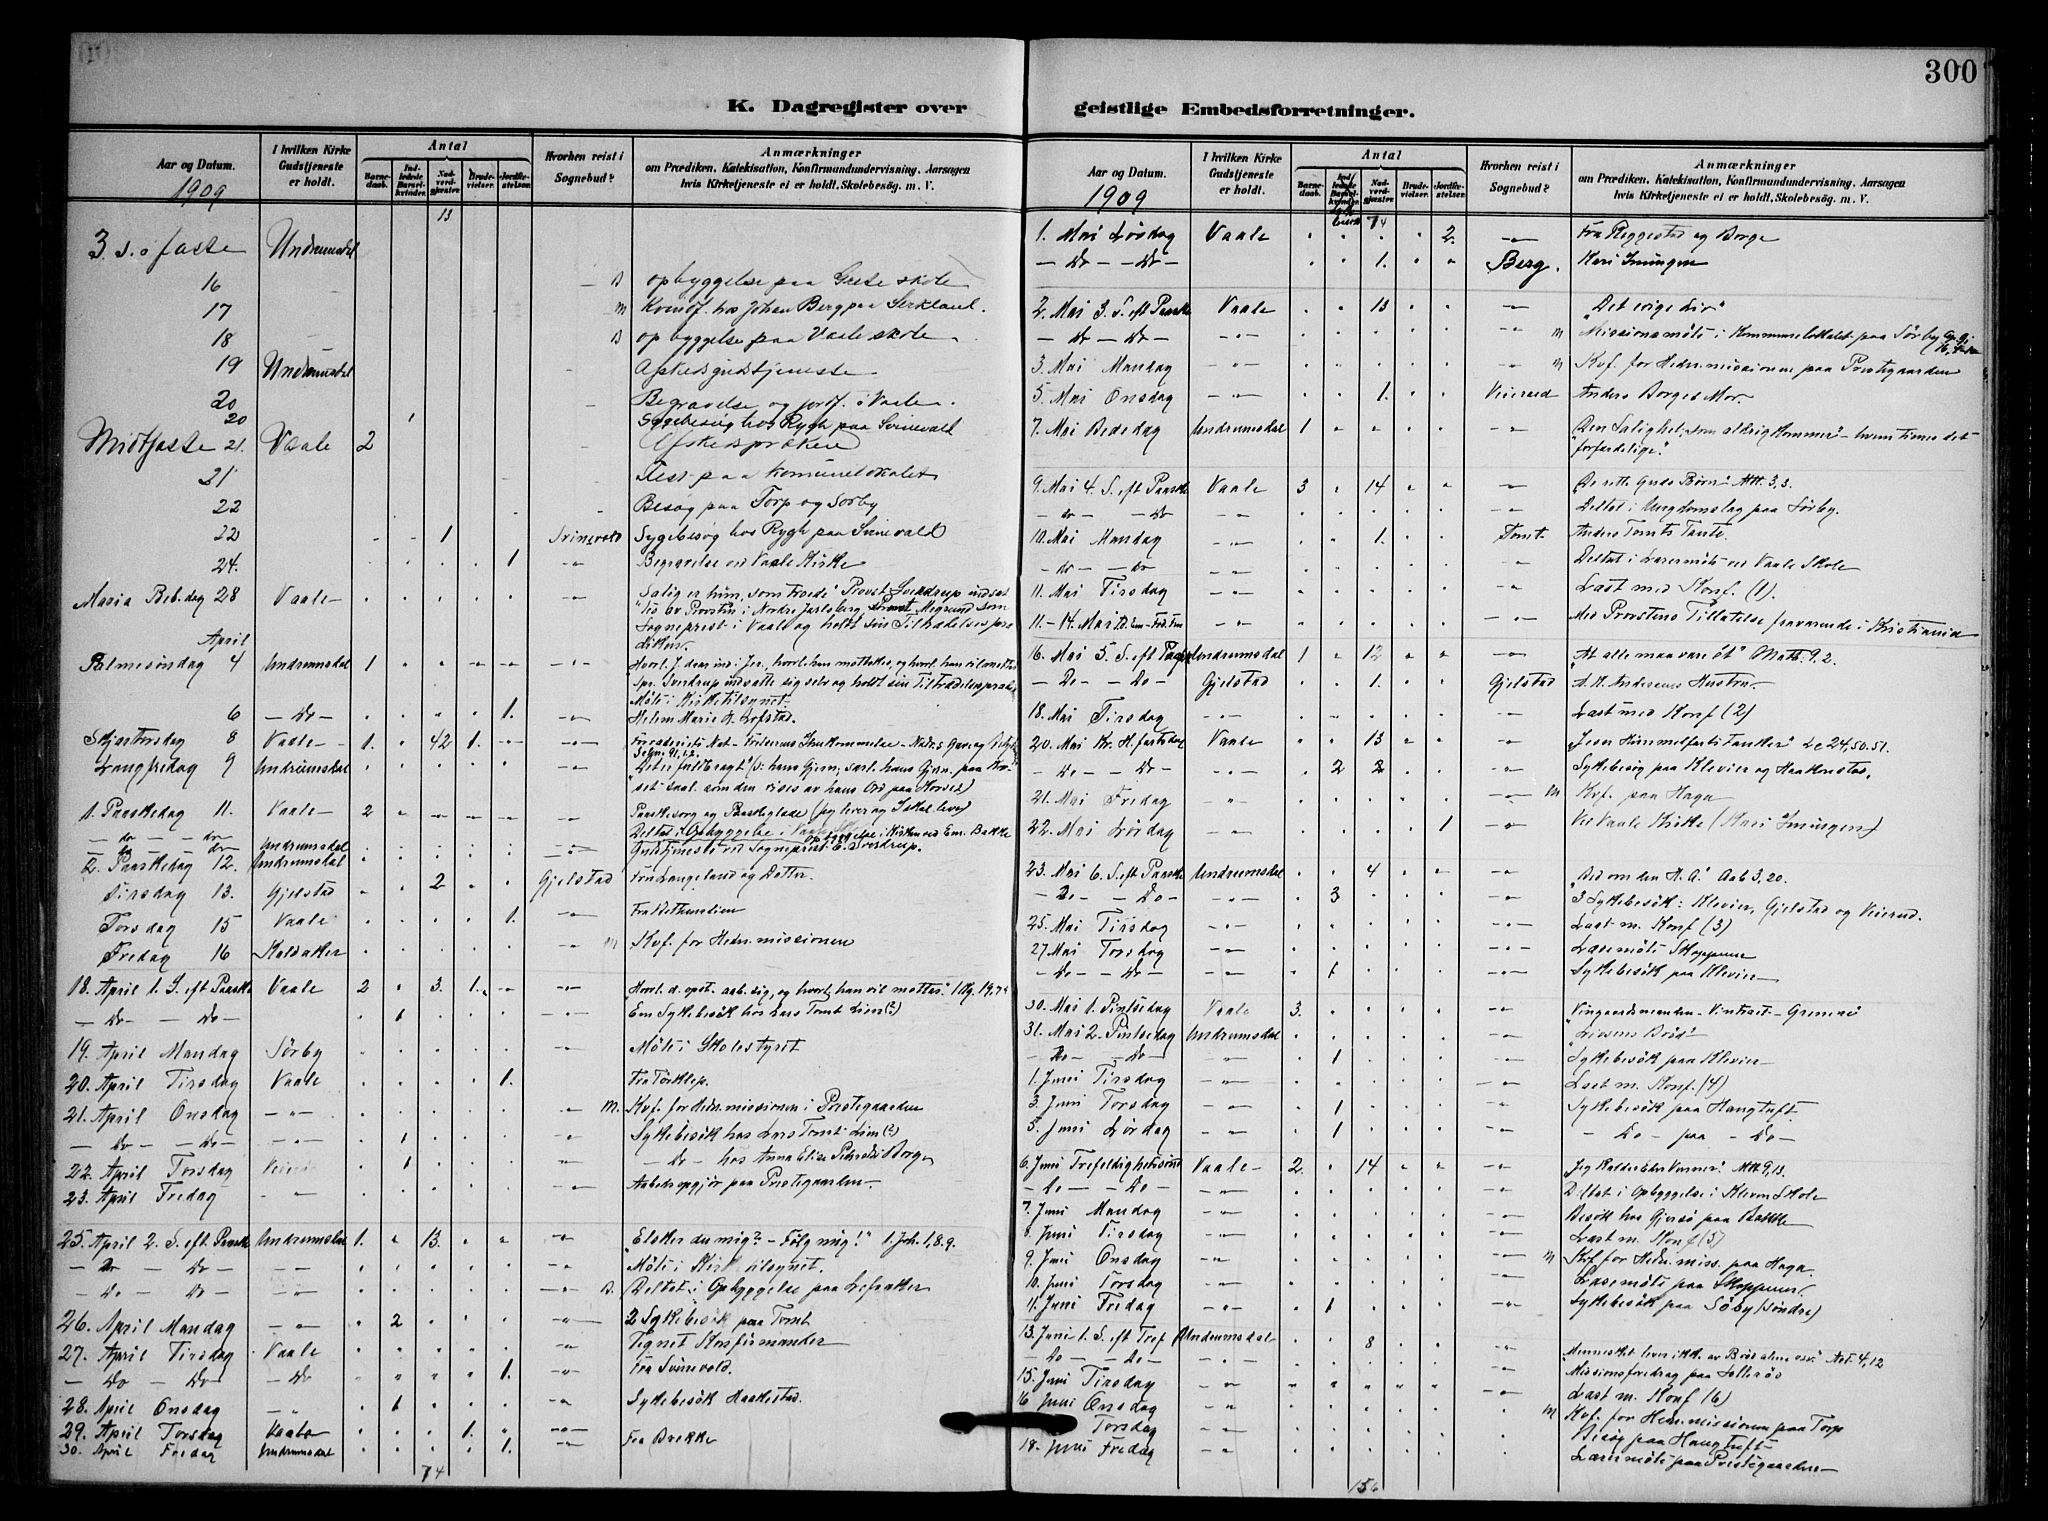 300
K. Dagregister over geistlige Embedsforretninger.
Aar og Datum. 1909
I hvilken Kirke Gudstjeneste er holdt.
Antal
Barnedaab.
Indledede Barselkvinder.
Nadverdgjæster.
Brudevielser.
Jordfæstelser.
Hvorhen reist i Sognebud?
Anmærkninger
om Prædiken, Katekisation, Konfirmandundervisning, Aarsagen
hvis Kirketjeneste ei er holdt, Skolebesög. m. V.
13
3. s. i faste Undrumsdal
16 B opbyggelse paa Grese skole
17 M Kvindf. hos Johan Berg paa Serkland.
18 B opbyggelse paa Vaale skole.
19 Undrumsdal Afskedsgudstjeneste
20 Begravelse og jordf. i Vaale.
20 Sygebesög hos Rygh paa Svinevald
Midtfaste 21. Vaale 2 Afskedspræken
21 Fest paa Komunelokalet
22 Besøg paa Torp og Sørby
22 1 Svinevald Sygebesøg hos Rygh paa Svinevald
24. 1 Begravelse ved Vaale Kirke
Maria Beb. dag 28 Vaale Salig er hun, som troede. Provst Sverdrup indsat
ved av Provsten i Nordre Jarlsberg, Provst som
Sogneprest i Vaale og holdt sin Tiltrædelsespræ
diken.
April
Palmesøndag 4 Undrumsdal 1 Hvorl. J. drar ind i Jer., hvorl. han mottakes, og hvorl. han vil mottas
Spr. Sverdrup indsatte sig selv og holdt sin Tiltrædelsespræk
Møte i Kirketilsynet
6 - Do - 1. Helene Marie H. Lofstad.
Skjærtorsdag 8 Vaale 1. 42 1. Forræderiets Nat - Frelserens Ihukommelse - Nadv.s Gave og
Langfredag 9 Undrumsdal "Det er fuldbragt" (s: hans Gjern; særl. hans Gjern. paa Kor-
set - saal. som den vises av hans Ord paa Korset)
1. Paaskedag 11. Vaale 2 Paaskesorg og Paaskeglæde (Jeg lever og I skal leve)
- do - - do - Deltat i Opbyggelse i Vaale
- do - - do - Undrumsdal Opbyggelse i Kirken ved Em. Bakke
2. Paaskedag 12. Undrumsdal Gudstjeneste ved Sogneprest E. Sverdrup.
Tirsdag 13. Gjelstad 2 Gjelstad Fru Langeland og Datter.
Torsdag 15 Vaale 1. Fra Bethanien
Fredag 16 Kaldaker M Kvf. for Hedn.missionen
18. April 1. S. eft Paaske Vaale 2 3. 1. Hvorl. d. opst. aab. sig, og hvorl. han vil mottas.
- Do - - Do - 1 Em Sykebesøk hos Lars Tomt Lien (?)
19. April Mandag Sørby Møte i Skolestyret
20. April Tirsdag Vaale 1. Fra Torklep.
21. April Onsdag M. Kvf. for Hedn.missionen i Prestegaarden
- Do - - Do - 1 Sykebesøk hos Lars Tomt Lien (?)
22. April Torsdag 1 - Do - hos Anna Elise Borge
23. April Fredag Arbeidsopgjør paa Prestegaarden.
25. April 2. S. eft Paaske Undrumsdal 1. 13. "Elsker du mig? - Følg mig!" 1. Joh. 1, 8. 9.
- Do - - Do - Møte i Kirketilsynet.
- Do - - Do - B. Deltat i Opbyggelse paa Lefsaker
26. April Mandag 2 2 Sykebesøk paa Tomt
27. April Tirsdag Vaale Tegnet Konfirmander
- Do - - Do - - Do 1. Fra Svinevold.
28. April Onsdag 1 Sykebesøk Haakestad.
29. April Torsdag Vaale 1.
30. April Fredag Undrumsdal 1. Fra Brekke
74
Aar og Datum. 1909
I hvilken Kirke Gudstjeneste er holdt.
Antal
Barnedaab.
Indledede Barselkvinder.
Nadverdgjæster.
Brudevielser.
Jordfæstelser.
Hvorhen reist i Sognebud?
Anmærkninger
om Prædiken, Katekisation, Konfirmandundervisning, Aarsagen
hvis Kirketjeneste ei er holdt, Skolebesög. m. V.
74
1. Mai Lørdag Vaale 2. Fra Reggestad og Borge
- Do - - Do - 1. Berg. Kari Imingen
2. Mai 3. S. eft Paaske Vaale 13 "Det evige Liv"
- Do - - Do - M Missionsmøte i Kommunelokalet paa Sørby
3. Mai Mandag M Kvf. for Hedn.missionen paa Prestegaarden
5. Mai Onsdag 1. Veierud Anders Borges Mor.
7. Mai Bededag Undrumsdal 1 "Den Salighet, som aldrig kommer" - hvem times det
forfærdelige?
9. Mai 4. S. eft Paaske Vaale 3 14 "De rette Guds Børn". Mt. 3, 3.
- do - - Do Deltat i Ungdomslag paa Sørby.
10. Mai Mandag 1. Tomt. Anders Tomts Tante.
- do - - do Deltat i Læremøte ved Vaale Skole
11. Mai Tirsdag Læst med Konf. (1).
11. - 14. Mai Med Provstens Tillatelse fraværende i Kristiania
16. Mai 5. S. eft Paaske Undrumsdal 1 12 "At alle maa være ét" Math. 9. 2.
- Do - - Do - Gjelstad 1. Gjelstad A. K. Andersens Hustru.
18. Mai Tirsdag Læst med Konf (2)
20. Mai Kr. H. fartsdag Vaale 13 "Jesu Himmelfarts Tanker" Lc 24, 50. 51.
- Do - - Do - 2 2 Sykebesøg paa Klevier og Haakestad.
21. Mai Fredag M Kvf. paa Haga
22. Mai Lørdag 1 Ved Vaale Kirke (Kari Imingen)
23. Mai 6. S. eft Paaske Undrumsdal 4 "Bed om den H. A." Aab 3, 20.
- Do - - Do - 3 3 Sykebesøk: Klevier, Gjelstad og Veierud.
25. Mai Tirsdag Læst m. Konf (3)
27 Mai Torsdag Læremøte Skoppum
- Do - - Do - 1 Sykebesøk paa Klevier
30. Mai 1. Pintsedag Vaale 3. Vingaardsmanden - Vintræet - Grenene
31. Mai 2. Pintsedag Undrumsdal "Livsens Brød"
- Do - - Do - 1 Sykebesøk paa Klevier
1. Juni Tirsdag Læst m. Konf. (4)
3. Juni Torsdag 1 Sykebesøk paa Haugtuft.
5. Juni Lørdag 1 - Do - paa - Do -
6. Juni Trefoldighetssønd Vaale 2. 14 "Jeg kalder Eder Venner". Mt 9, 13.
- Do - - Do - Deltat i Opbyggelse i Kleven Skole
7. Juni Mandag Besøk hos Gjersø paa Bakke
8. Juni Tirsdag Læst m. Konf (5)
9. Juni Onsdag M Kvf. for Hedn.miss. paa Haga.
10. Juni Torsdag Læsemøte paa Skoppum
11. Juni Fredag 1 Sykebesøk paa Söby (söndre)
13. Juni 1. S. eft Tref Undrumsdal 8 "Mennesket lever ikke av Brød alene osv." Act. 4, 12
- Do - - Do - Missionsforedrag paa Solleröd
15. Juni Tirsdag Læst m. Konf (6)
16 Juni Onsdag M Kvf. for Hedn.missionen paa Torp
Torsdag Besøg paa Haugtuft
18. Juni Fredag Læsemøte paa Prestegaarden
156